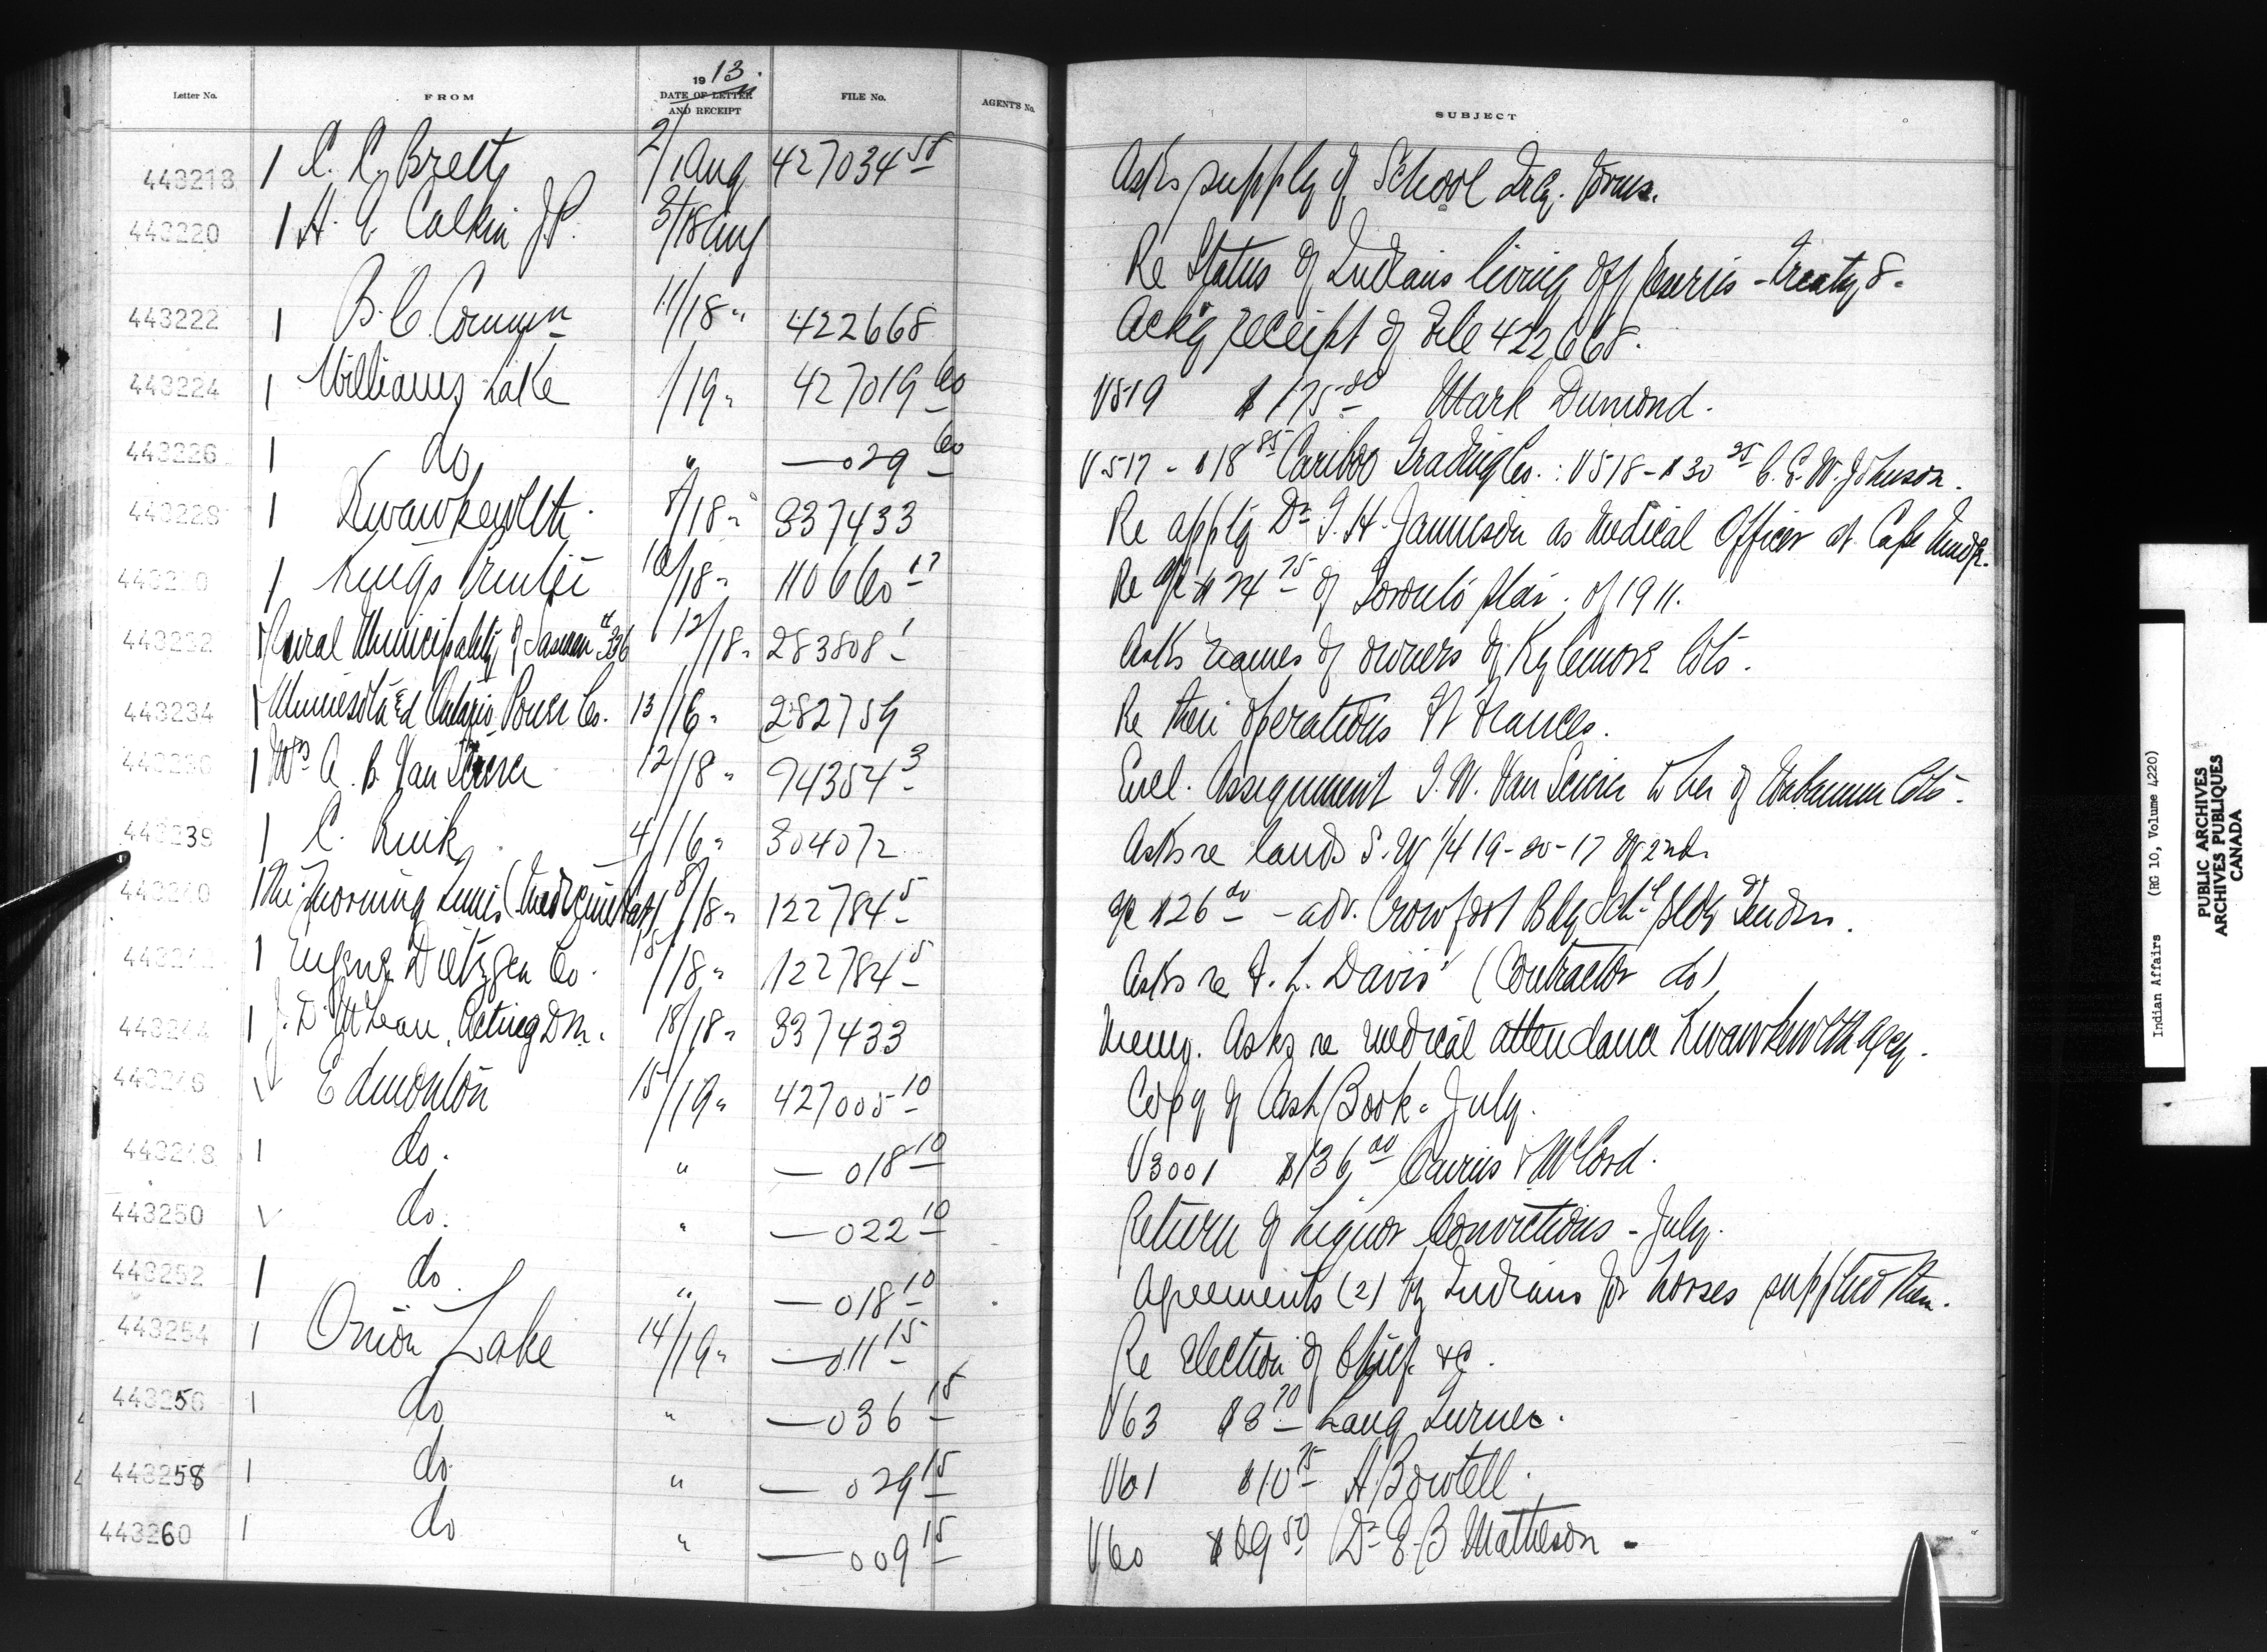 1913.
Letter No. FROM DATE OF LETTER AND RECEIPT FILE No. AGENT'S No. SUBJECT
443218 1 Brett 2/ Aug 427034 Asks supply of School forms.
443220 1 H. Calkin J.P. /18 Aug Re Status of Indians living off reserves - Treaty 8.
443222 1 B.C. Commn 11/18 " 422668 Ackg receipt of File 422668.
443224 1 Williams Lake /19 " 427019 60 V519 $175 Mark Dumond.
443226 1 do " — 029 60 V517 - $18 85 Cariboo Trading Co. : V518 - $30 25 C. E. W. Johnson.
443228 1 Kwawkewlth 8/18 " 337433 Re applg Dr. Jamieson as Medical Officer at Cape Mudge.
1 Kings Printer /18 " 110660 Re a/c of Toronto Star of 1911.
443232 Rural Municipality of Sasman #336 12/18 " 283808 1 Asks names of owners of Kylemore lots.
443234 Minnesota & Ontario Power Co. 13/16 " 282759 Re their operations Ft Frances.
1 Mrs A. B. Van 12/18 " 94354 3 Encl. Assignment to her of Wabamun lots.
443238 1 C. 4/16 " 304072 Asks re lands S.W 1/4 19-20-17 W 2nd.
443240 1 The Morning Times (Medicine Hat) 8/18 " 122784 5 a/c $26 - adv. Crowfoot Bdg Schl Bldg Tenders.
1 Eugene Dietzgen Co. 15/18 " 122784 5 Asks re F. L. Davis (Contractor do)
443244 1 J. D. McLean, Acting D.M. 18/18 " 337433 Memo. Asks re medical attendance Kwawkewlth Agcy.
443246 ✓ Edmonton 15/19 " 427005 10 Copy of Cash Book - July.
443248 1 do. " — 018 10 V3001 $136 00 & McCord.
443250 ✓ do. " — 022 10 Return of Liquor Convictions - July.
443252 1 do. " — 018 10 Agreements (2) by Indians for horses supplied them.
443254 1 Onion Lake 14/19 " — 011 15 Re Election of Chief &c.
443256 1 do " — 036 15 V63 Lang Turner.
443258 1 do " — 029 15 V61 $10 75 A. Bowtell.
443260 1 do " — 009 15 V60 $69 50 Dr E. B Matheson -
Indian Affairs (RG 10, Volume 4220)
PUBLIC ARCHIVES
ARCHIVES PUBLIQUES
CANADA